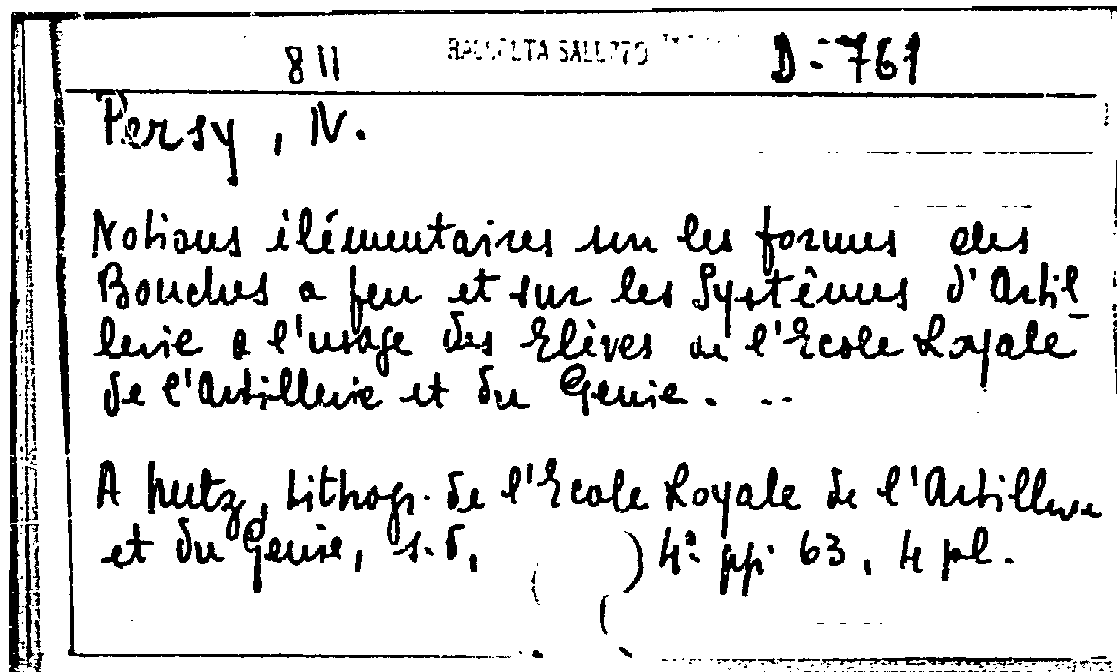 811 RACCOLTA SALUZZO D-761
Persy, N.
Notions élémentaires sur les formes des
Bouches a feu et sur les Systêmes d'Artil_
lerie a l'usage des Elèves de l'Ecole Royale
de l'Artillerie et du Genie. . .
A Metz, Lithogr. de l'Ecole Royale de l'Artillerie
et du Genie, s.d, ( ) 4º pp. 63, 4 pl.
(